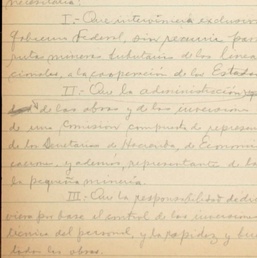 necesitaria:
I.- Que intervenga exclusivam
Gobierno Federal, sin recurrir para
rutas mineras tributarias de las líneas
cionales, a la cooperación de los Estados
II.- Que la administración
de las obras y de las inversiones
de una comisión compuesta de represen
de las Secretarías de Hacienda, de Economía
caciones, y además, representante de la
la pequeña minería.
III.- Que la responsabilidad de
por base el control de las inversiones
técnica del personal, y la rapidez y
todas las obras.